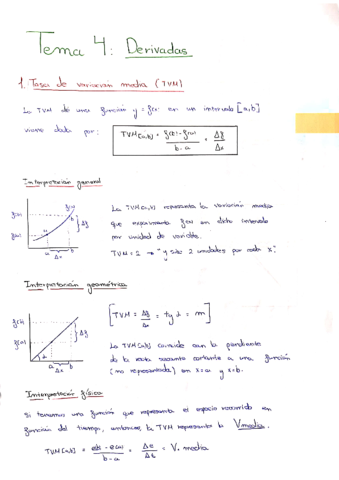 Tema 4: Derivadas
1. Tasa de variación media (TVM)
La TVM de una función y = f(x) en un intervalo [a,b]
viene dada por: TVM[a,b] = f(b) - f(a) / b - a = Δf / Δx
Interpretación general
f(x)
f(b)
f(a)
Δf
a b
Δx
La TVM[a,b] representa la variación media
que experimenta f(x) en dicho intervalo
por unidad de variable.
TVM = 2 → "y sube 2 unidades por cada x"
Interpretación geométrica
f(b)
f(a)
Δf
a b
Δx
[TVM = Δf / Δx = tg α = m]
La TVM[a,b] coincide con la pendiente
de la recta secante cortante a una función
(no representada) en x=a y x=b.
Interpretación física
Si tenemos una función que representa el espacio recorrido en
función del tiempo, entonces, la TVM representa la Vmedia.
TVM[a,b] = e(b) - e(a) / b - a = Δe / Δt = V. media